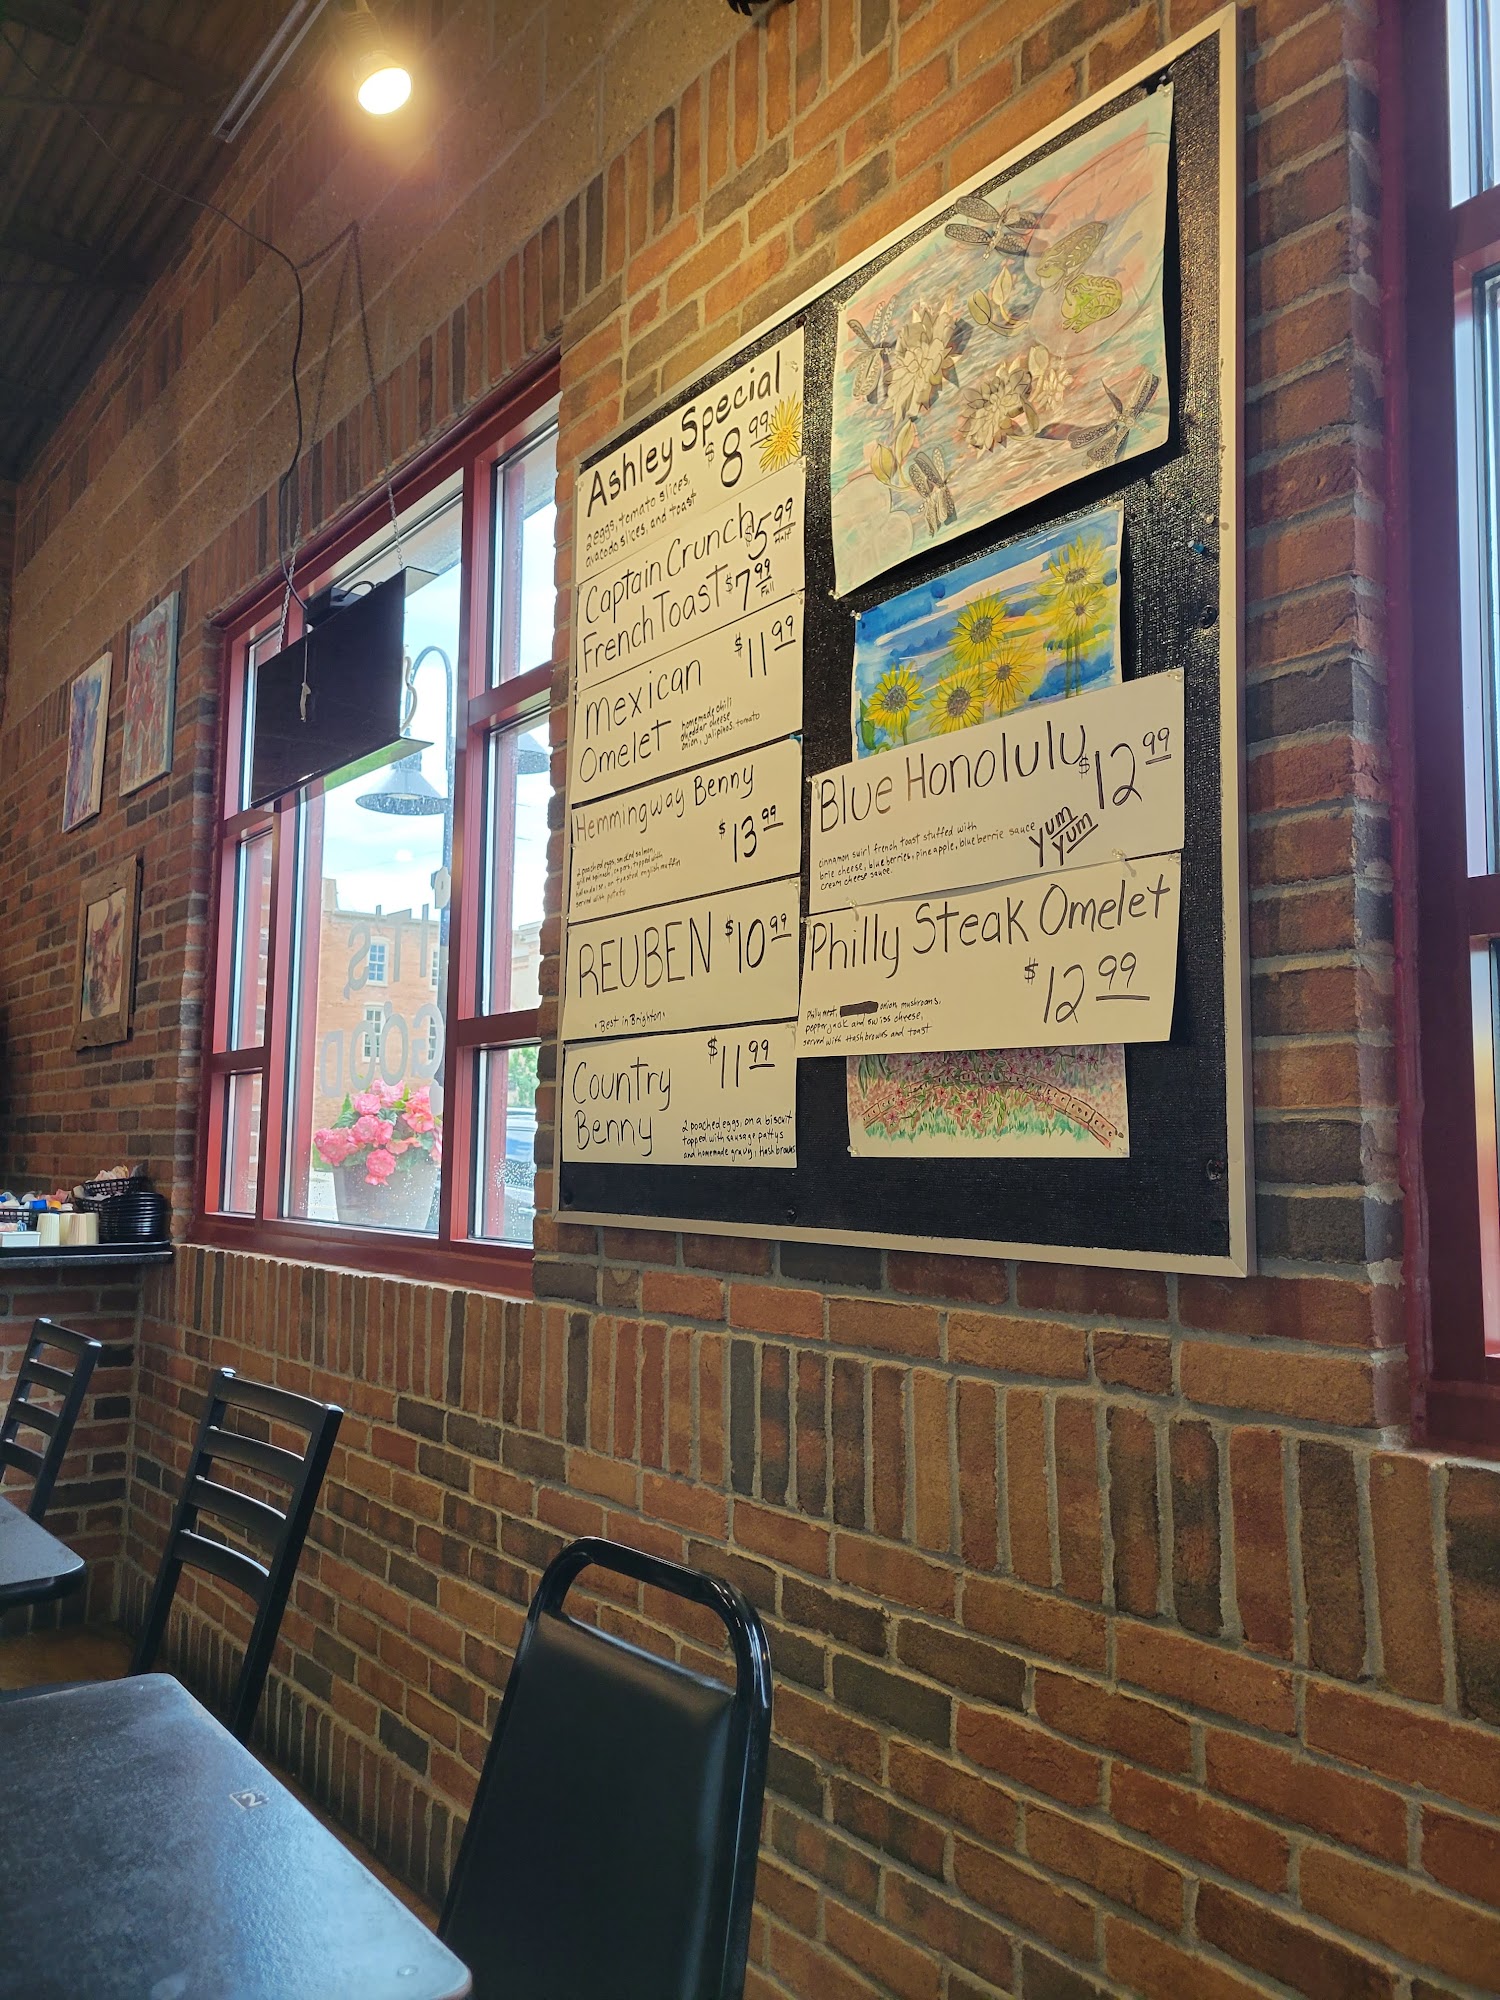 Ashley Special
$8.99
2 eggs, tomato slices,
avacado slices, and toast
Captain Crunch $5.99 Half
French Toast $7.99 Full
Mexican $11.99
Omelet
homemade chili
cheddar cheese
onion, jalipinos, tomato
Hemmingway Benny
$13.99
2 poached eggs, smoked salmon,
grilled spinach, capers, topped with
hollandaise, on toasted english muffin
served with potato
REUBEN $10.99
"Best in Brighton"
Country $11.99
Benny
2 poached eggs, on a biscuit
topped with sausage pattys
and homemade gravy, Hashbrowns
Blue Honolulu $12.99
cinnamon swirl french toast stuffed with
brie cheese, blueberries, pineapple, blueberrie sauce
cream cheese sauce.
Yum
Yum
Philly Steak Omelet
$12.99
Philly meat, onion, mushrooms,
pepperjack and swiss cheese,
served with Hashbrowns and toast
ITTS
GOOD
2